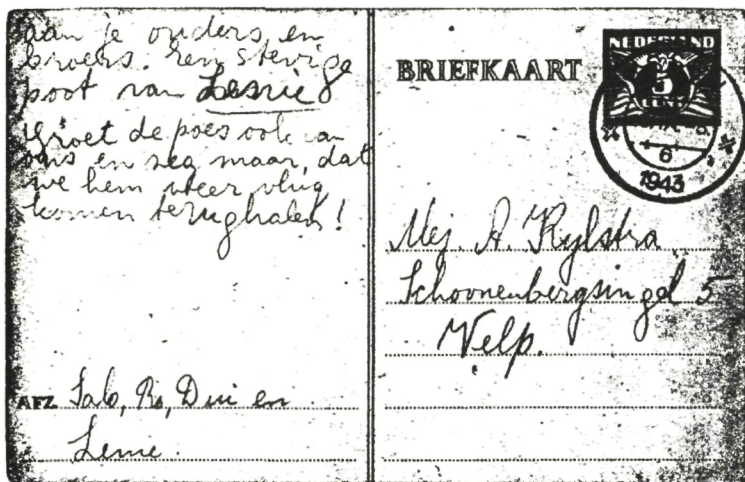 aan je ouders en
broers. Een stevige
poot van
Groet de poes ook van
ons en zeg maar, dat
we hem weer vlug
komen terughalen!
AFZ. Salo, Ro, Dui en
BRIEFKAART
NEDERLAND
5
CENT
6
1943
Mej. A. Rylstra
Schoonenbergsingel 5
Velp.